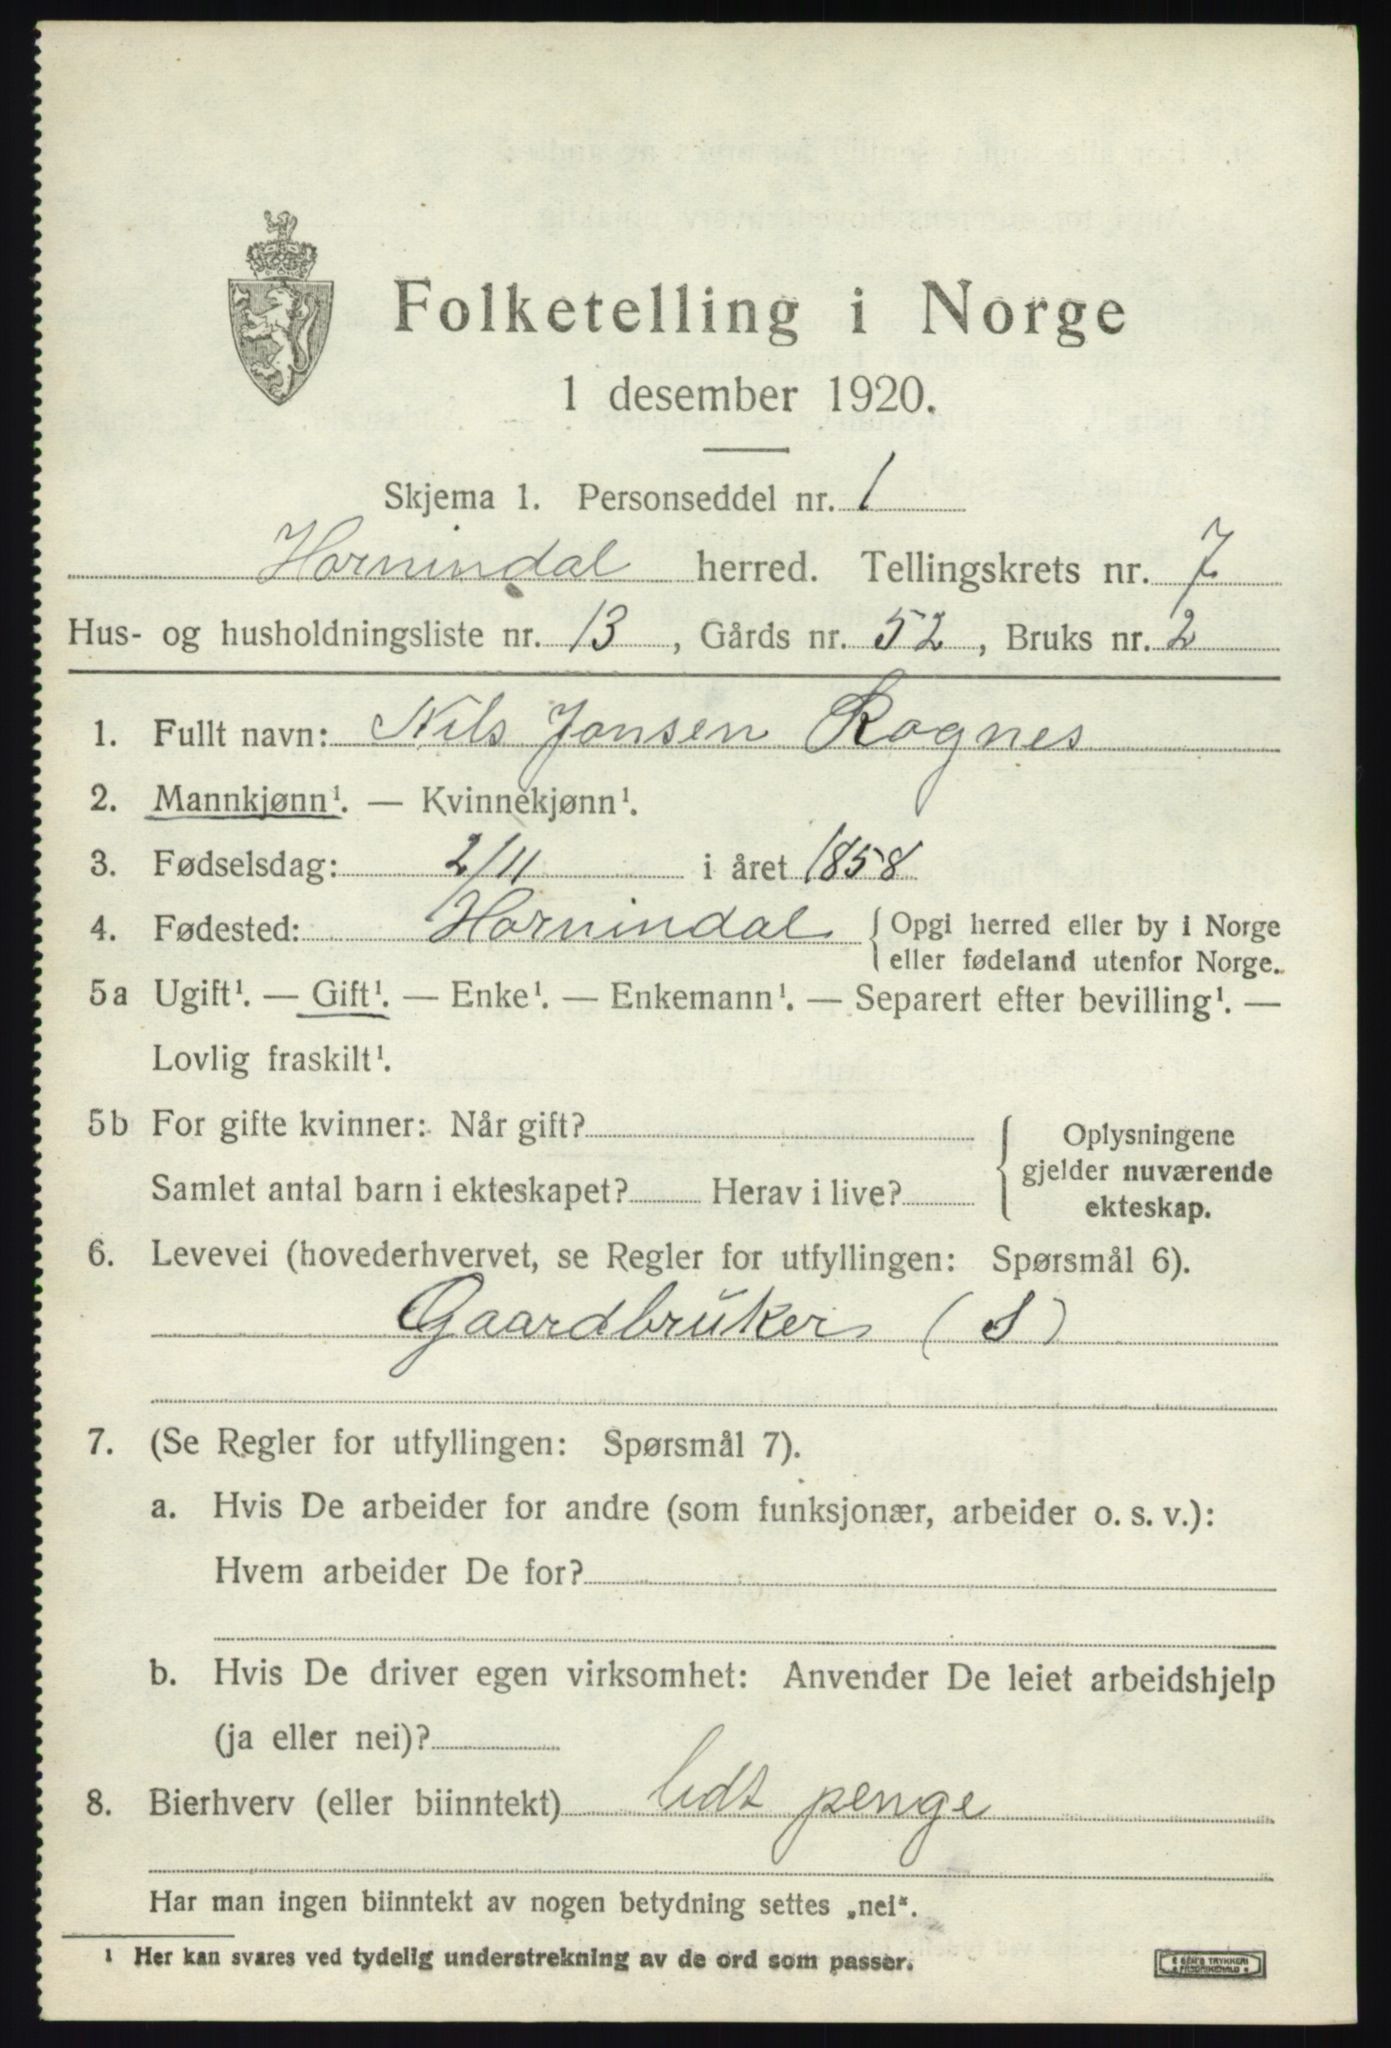 Folketelling i Norge
1 desember 1920.
Skjema 1. Personseddel nr. 1
Hornindal herred. Tellingskrets nr. 7
Hus- og husholdningsliste nr. 13, Gårds nr. 52, Bruks nr. 2
1. Fullt navn: Nils Jonsen Rognes
2. Mannkjønn¹. — Kvinnekjønn¹.
3. Fødselsdag: 2/11 i året 1858
4. Fødested: Hornindal { Opgi herred eller by i Norge
eller fødeland utenfor Norge.
5a Ugift¹. — Gift¹. — Enke¹. — Enkemann¹. — Separert efter bevilling¹. —
Lovlig fraskilt¹.
5b For gifte kvinner: Når gift?
Samlet antal barn i ekteskapet? Herav i live?
Oplysningene
gjelder nuværende
ekteskap.
6. Levevei (hovederhvervet, se Regler for utfyllingen: Spørsmål 6).
Gaardbruker (S)
7. (Se Regler for utfyllingen: Spørsmål 7).
a. Hvis De arbeider for andre (som funksjonær, arbeider o. s. v.):
Hvem arbeider De for?
b. Hvis De driver egen virksomhet: Anvender De leiet arbeidshjelp
(ja eller nei)?
8. Bierhverv (eller biinntekt) lidt penge
Har man ingen biinntekt av nogen betydning settes „nei".
¹ Her kan svares ved tydelig understrekning av de ord som passer.